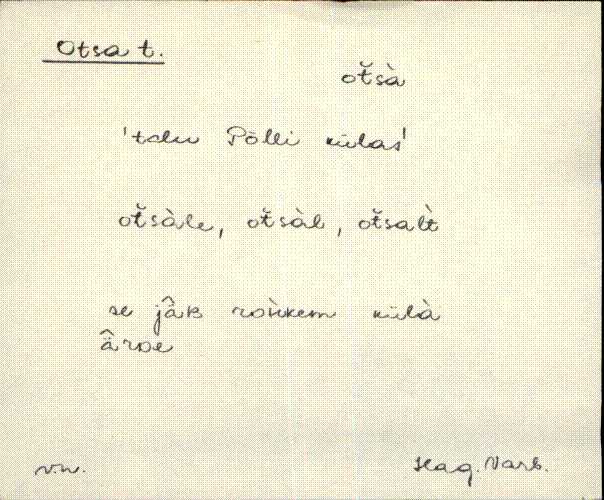 Otsa t.
ot̆sà
'talu Põlli külas'
ot̆sàle, ot̆sàl, ot̆salt̀
se jâB roh̀kem külà
ârDe
v.w. Hag. Varb.